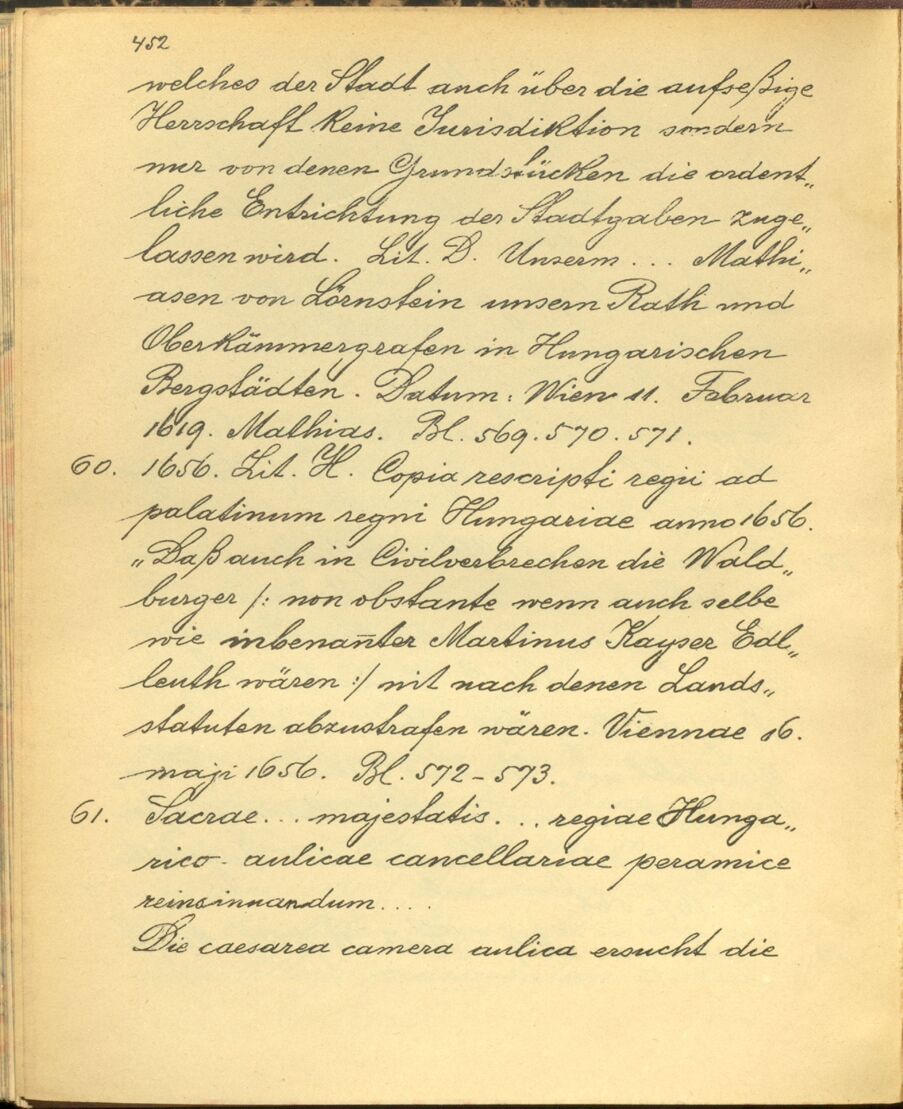 452
welches der Stadt auch über die aufseßige
Herrschaft keine Jurisdiktion sondern
nur von denen Grundstücken die ordent„
liche Entrichtung der Stadtgaben zuge„
lassen wird. Lit. D. Unserm... Mathi„
asen von Lörnstein unsern Rath und
Oberkämmergrafen in Hungarischen
Bergstädten. Datum: Wien 11. Februar
1619. Mathias. Bl. 569. 570. 571.
60. 1656. Lit. H. Copia rescripti regii ad
palatinum regni Hungariae anno 1656.
„Daß auch in Civilverbrechen die Wald„
burger /: non obstante wenn auch selbe
wie inbenan̄ter Martinus Kayser Edl„
leuth wären :/ nit nach denen Lands„
statuten abzustrafen wären. Viennae 16.
maji 1656. Bl. 572-573.
61. Sacrae... majestatis... regiae Hunga„
rico- aulicae cancellariae peramice
reinsinuandum....
Die caesarea camera aulica ersucht die